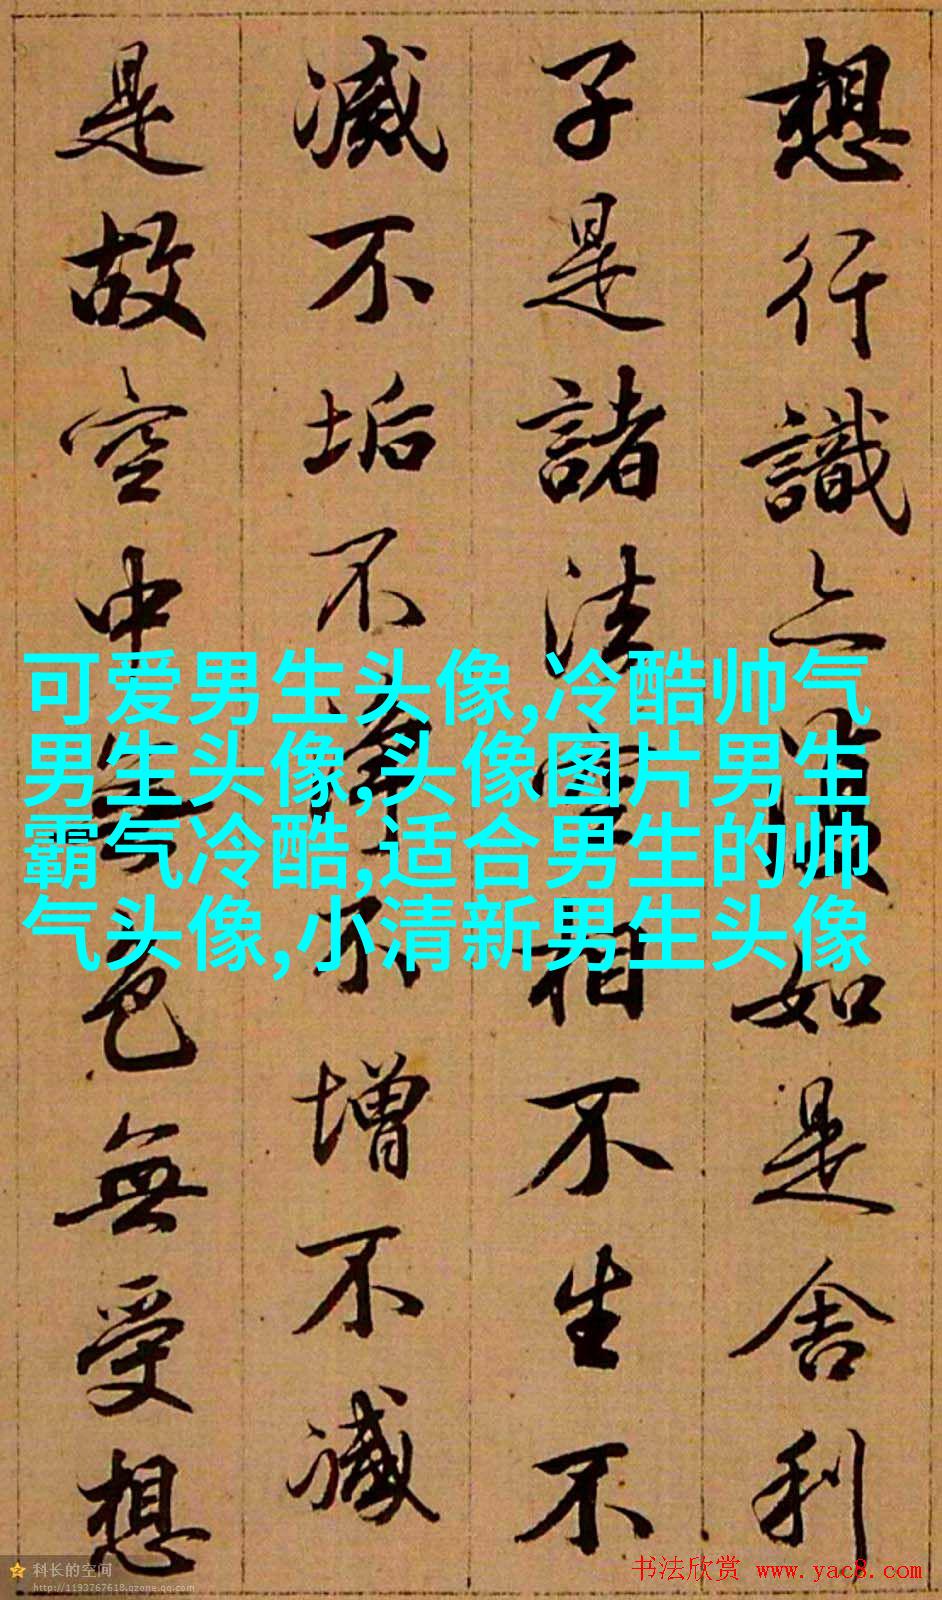 想行識亦復如是舍利
子是諸法空相不生不
滅不垢不淨不增不減
是故空中無色無受想
可爱男生头像,冷酷帅气
男生头像,头像图片男生
霸气冷酷,适合男生的帅
气头像,小清新男生头像
科长的空间
http://1193767618.qzone.qq.com
书法欣赏 www.yac8.com